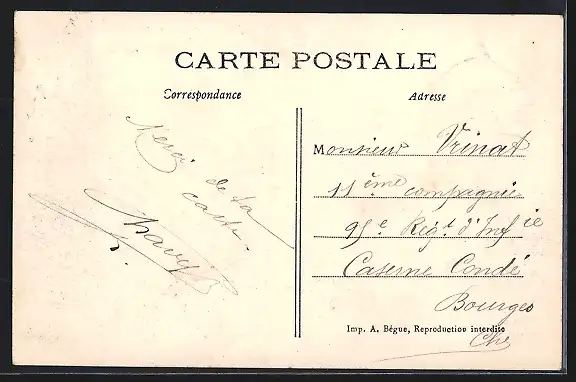 CARTE POSTALE
Correspondance
Adresse
Merci
de ta
carte.
Monsieur Vrinat
11ème compagnie
95e Régt d'Infie
Caserne Condé
Bourges
Imp. A. Bégue, Reproduction interdite
Cher